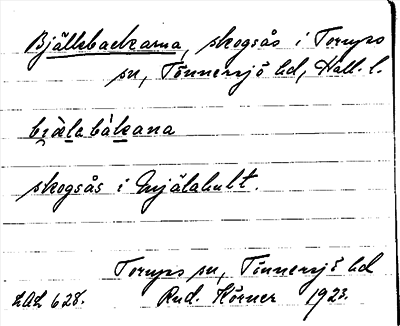 Bjällbackarna, skogsås i Torups
sn, Tönnersjö hd, Hall. l.
bjälabàkana
skogsås i Mjälahult.
Torups sn, Tönnersjö hd
LAL 628. Rud. Körner 1923.